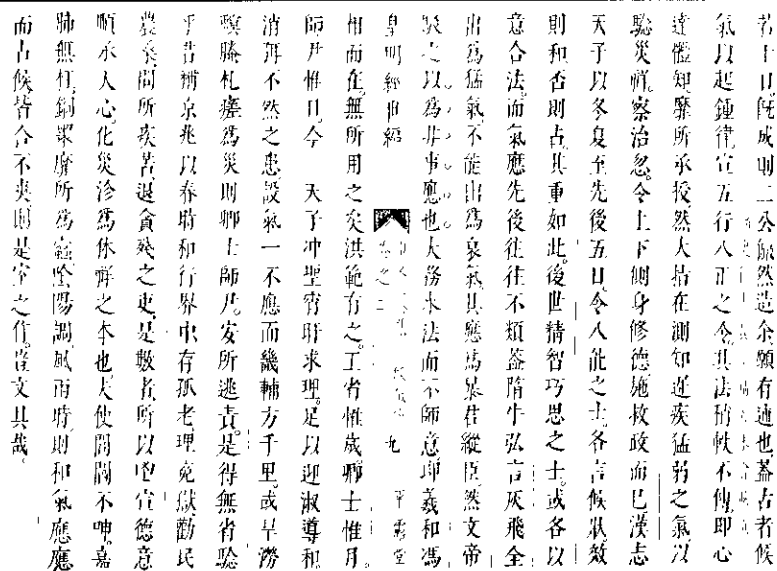 若干日既成則二公飽然造余願有適也蓋古者候
氣以起鍾律宣五行八正之令其法稍軼不傳即心
達體知靡所承授然大指在測知遲疾猛弱之氣以
驗災祥察治忽令上下側身修德施救政而已漢志
天子以冬夏至先後五日令八能之士各言候狀效
則和否則占其重如此後世精智巧思之士或各以
意合法而氣應先後往往不類蓋隋牛弘言灰飛全
出為猛氣不能出為衰氣其應為暴君縱臣然文帝
駁之以為非事應也大務求法而不師意即羲和馮
皇明經世編
九
平露堂
相而在無所用之矣洪範有之王省惟歲卿士惟月
師尹惟日今 天子冲聖宵旰求理足以迎淑導和
消弭不然之患設氣一不應而畿輔方千里或旱澇
螟螣札瘥為災則卿士師尹安所逃責是得無省驗
乎昔補京兆以春時和行界中有孤老理冤獄勸民
農桑問所疾苦退貪殘之吏是數者所以宣德意
順承人心化災沴為休祥之本也夫使閭閻不呻嘉
肺無枉銅墨靡所為蠹陰陽調風雨時則和氣應應
而占候皆合不爽則是室之作豈文具哉